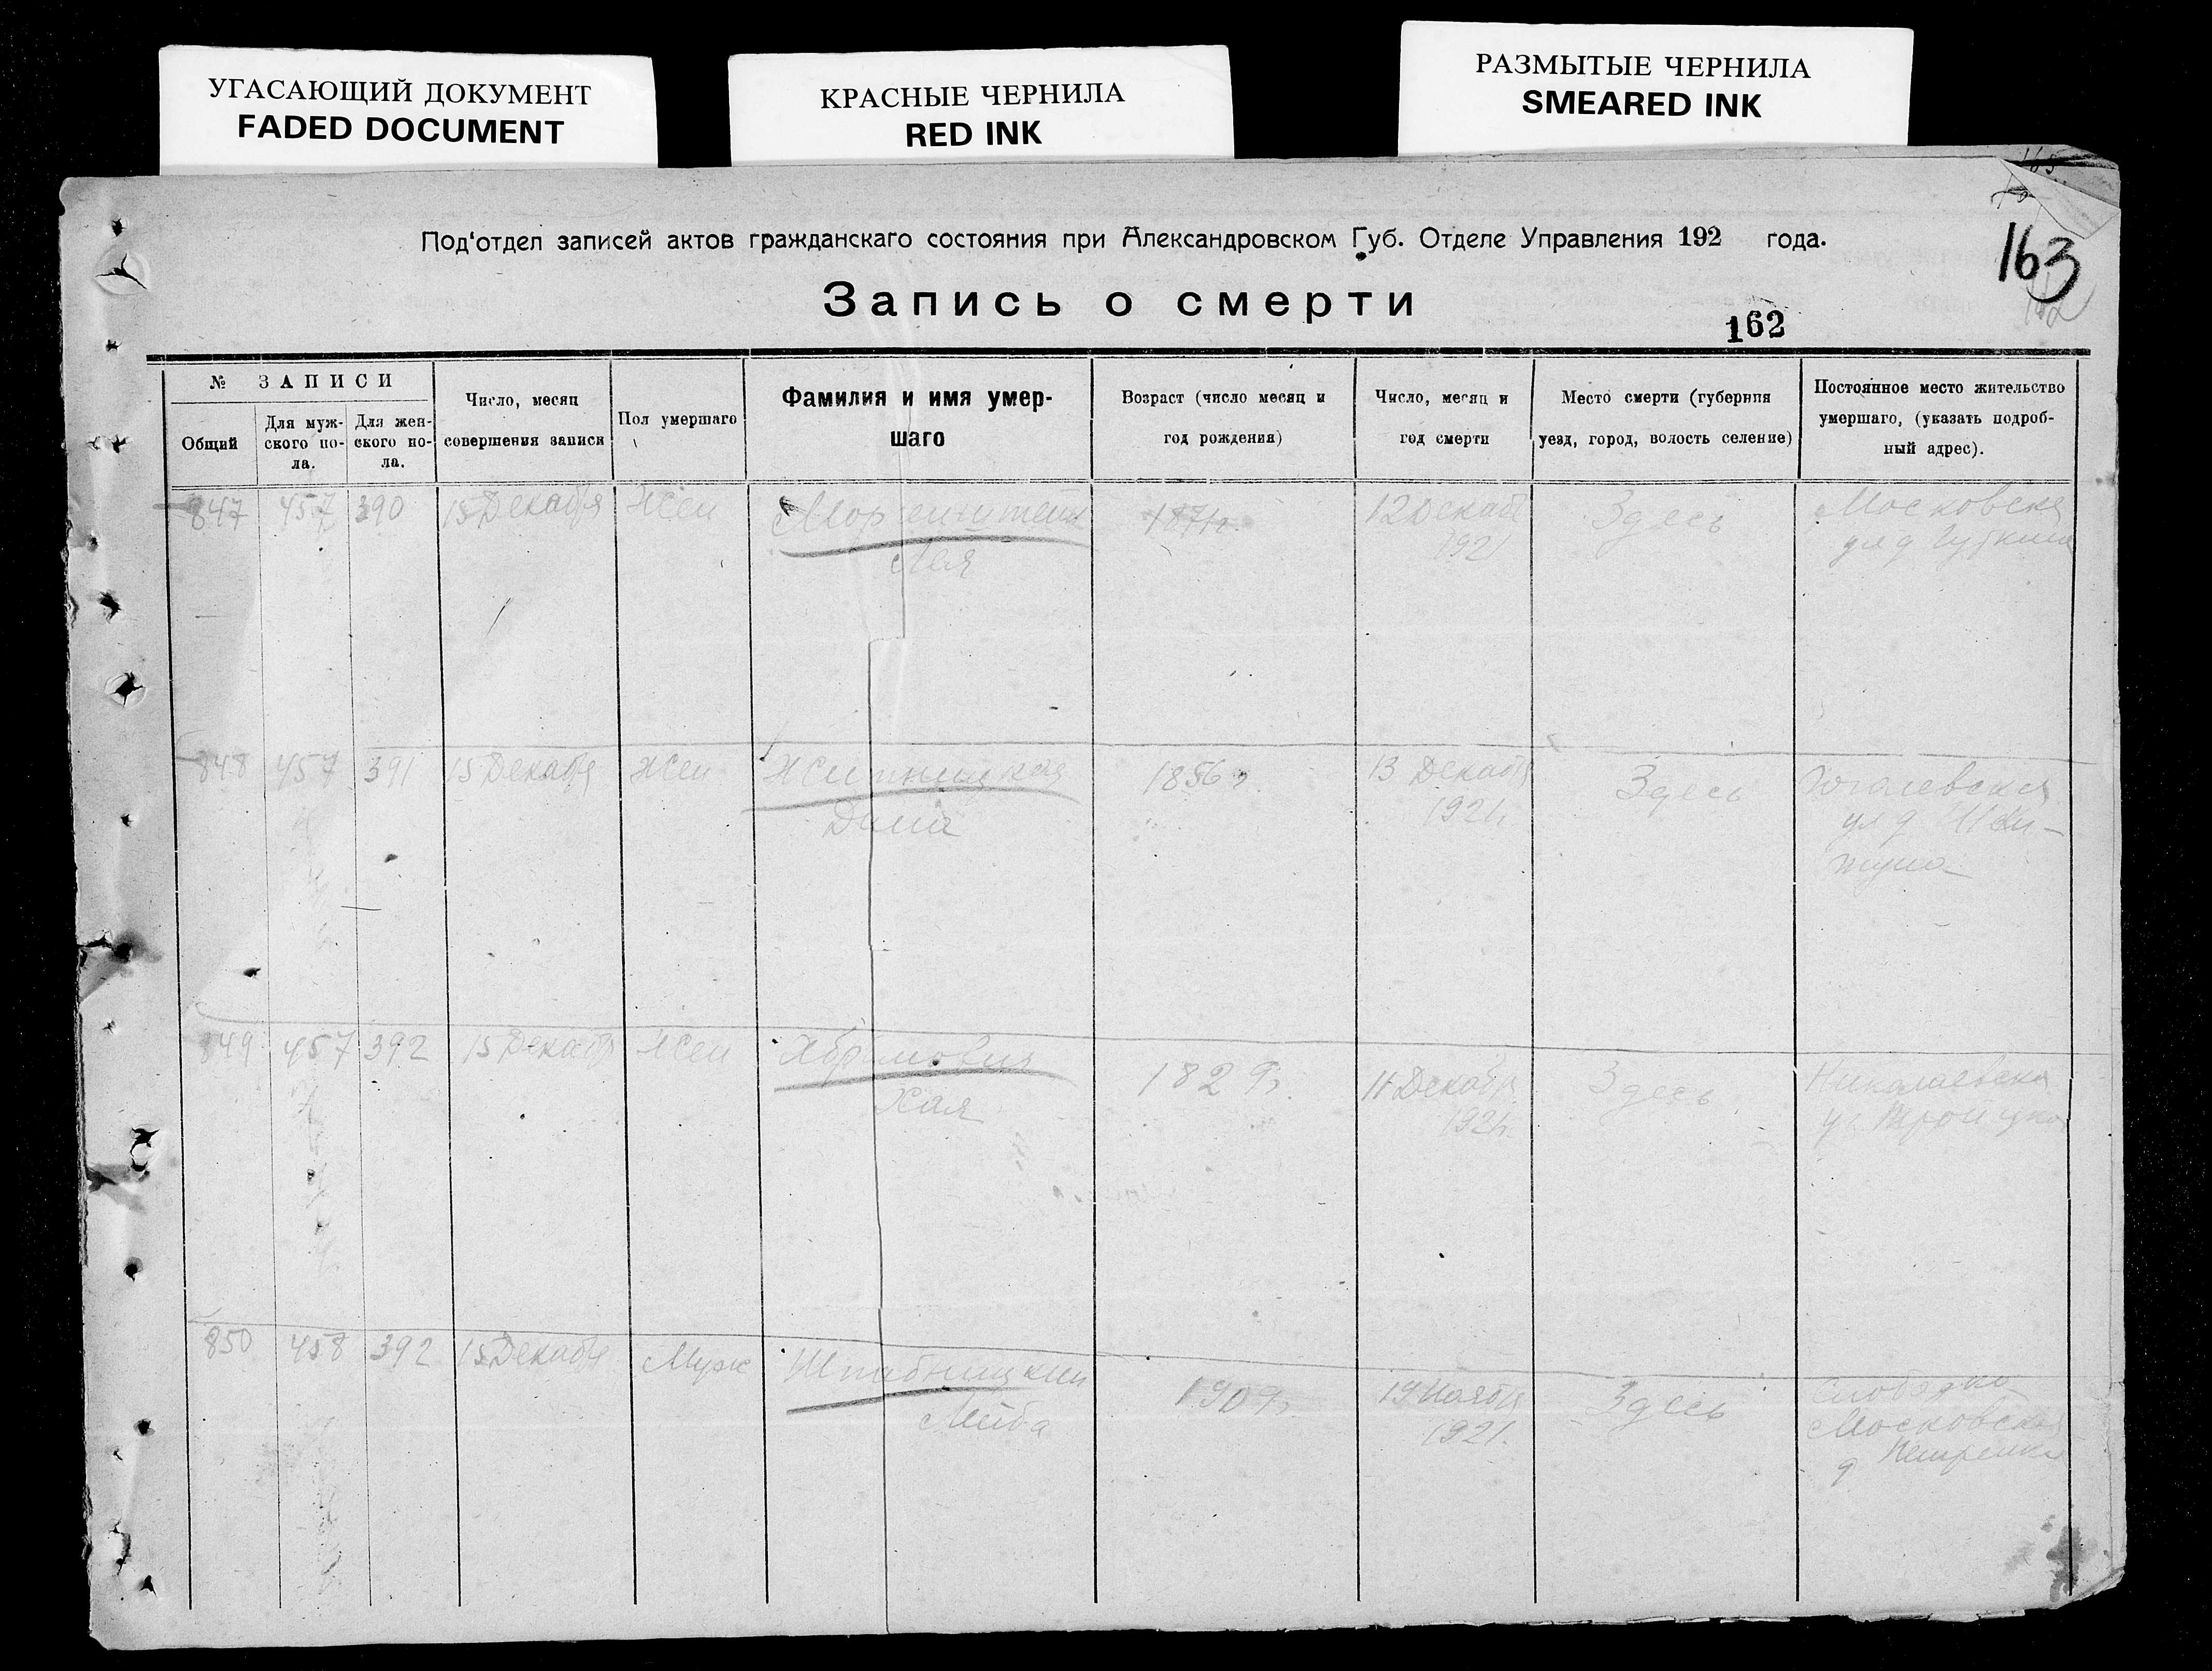 УГАСАЮЩИЙ ДОКУМЕНТ
FADED DOCUMENT
КРАСНЫЕ ЧЕРНИЛА
RED INK
РАЗМЫТЫЕ ЧЕРНИЛА
SMEARED INK
163
Под'отдел записей актов гражданскаго состояния при Александровском Губ. Отделе Управления 192 года.
Запись о смерти
162
№ ЗАПИСИ
Общий
Для муж-
ского по-
ла.
Для жен-
ского по-
ла.
Число, месяц
совершения записи
Пол умершаго
Фамилия и имя умер-
шаго
Возраст (число месяц и
год рождения)
Число, месяц и
год смерти
Место смерти (губерния
уезд, город, волость селение)
Постоянное место жительство
умершаго, (указать подроб-
ный адрес).
847 457 390 15 Декабря Жен
Лея
12 Декаб
1921
Здесь
Московска
ул д
848 457 391 15 Декабря Жен Житницкая
1856 г.
13 Декабря
1921г.
Здесь
Гоголевская
ул д
849 457 392 15 Декабря Жен Абрамович
Хая
1829г.
11 Декабря
1921г.
Здесь
Николаевска
уг. Троицко
850 458 392 15 Декабря Муж
Лейба
1909г.
19 Ноября
1921.
Здесь
Слободка
Московская
д Петренка